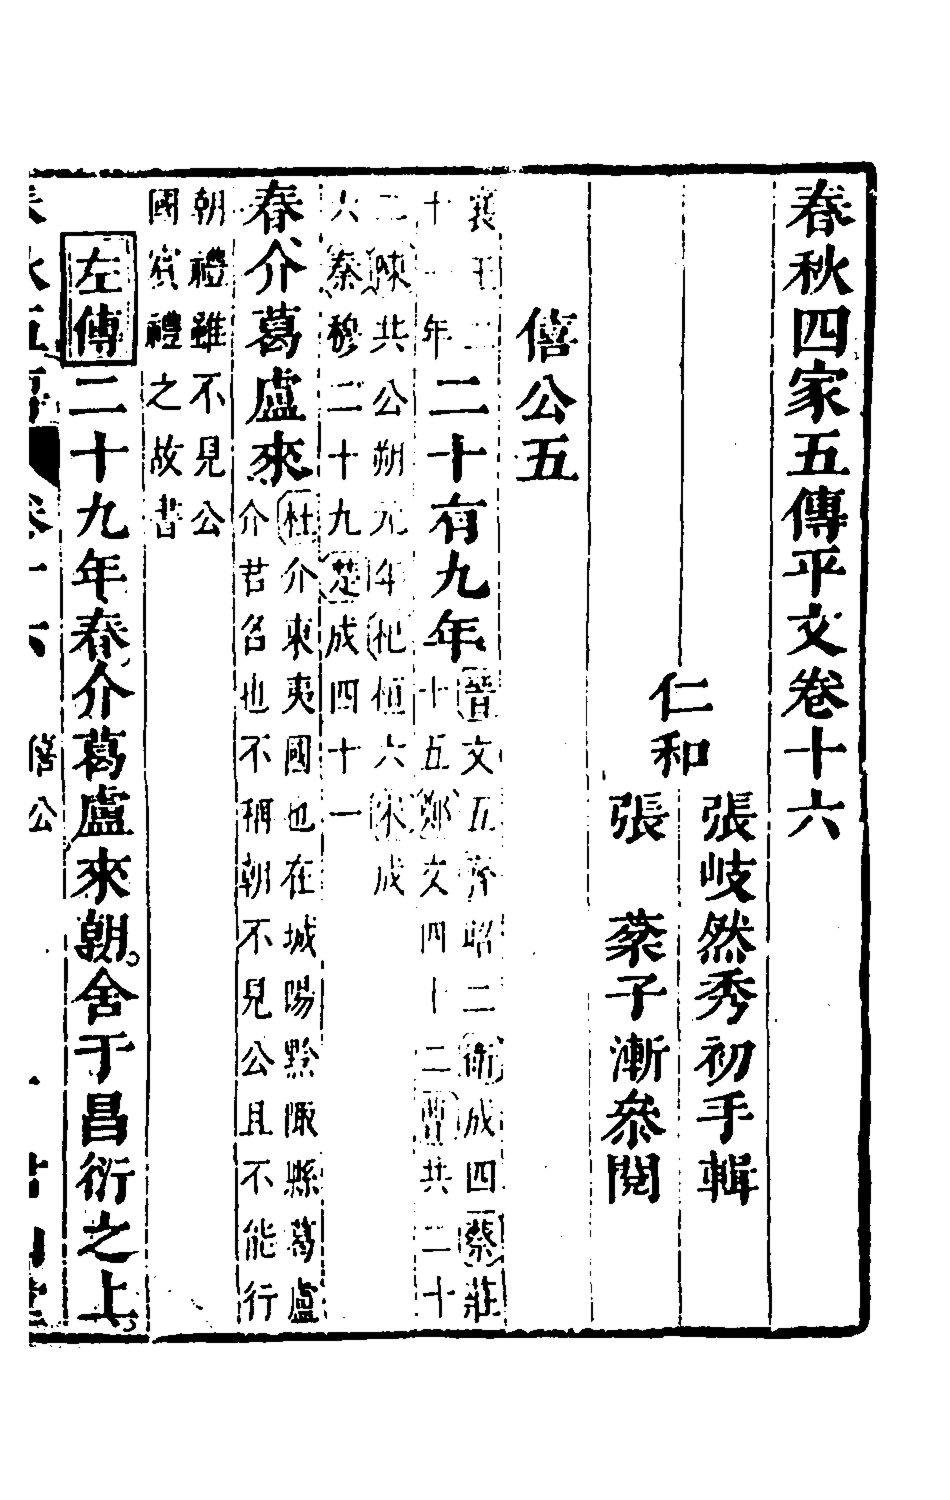 春秋四家五傳平文卷十六
仁和
張岐然秀初手輯
張 蒙子漸叅閱
僖公五
襄王二
十一年
二十有九年
晉文五齊昭二衛成四蔡莊
十五鄭文四十二曹共二十
二陳共公朔元年杞桓六宋成
六秦穆二十九楚成四十一
春介葛盧來
杜介東夷國也在城陽黔陬縣葛盧
介君名也不稱朝不見公且不能行
朝禮雖不見公
國賓禮之故書
左傳二十九年春介葛盧來朝舍于昌衍之上
僖公